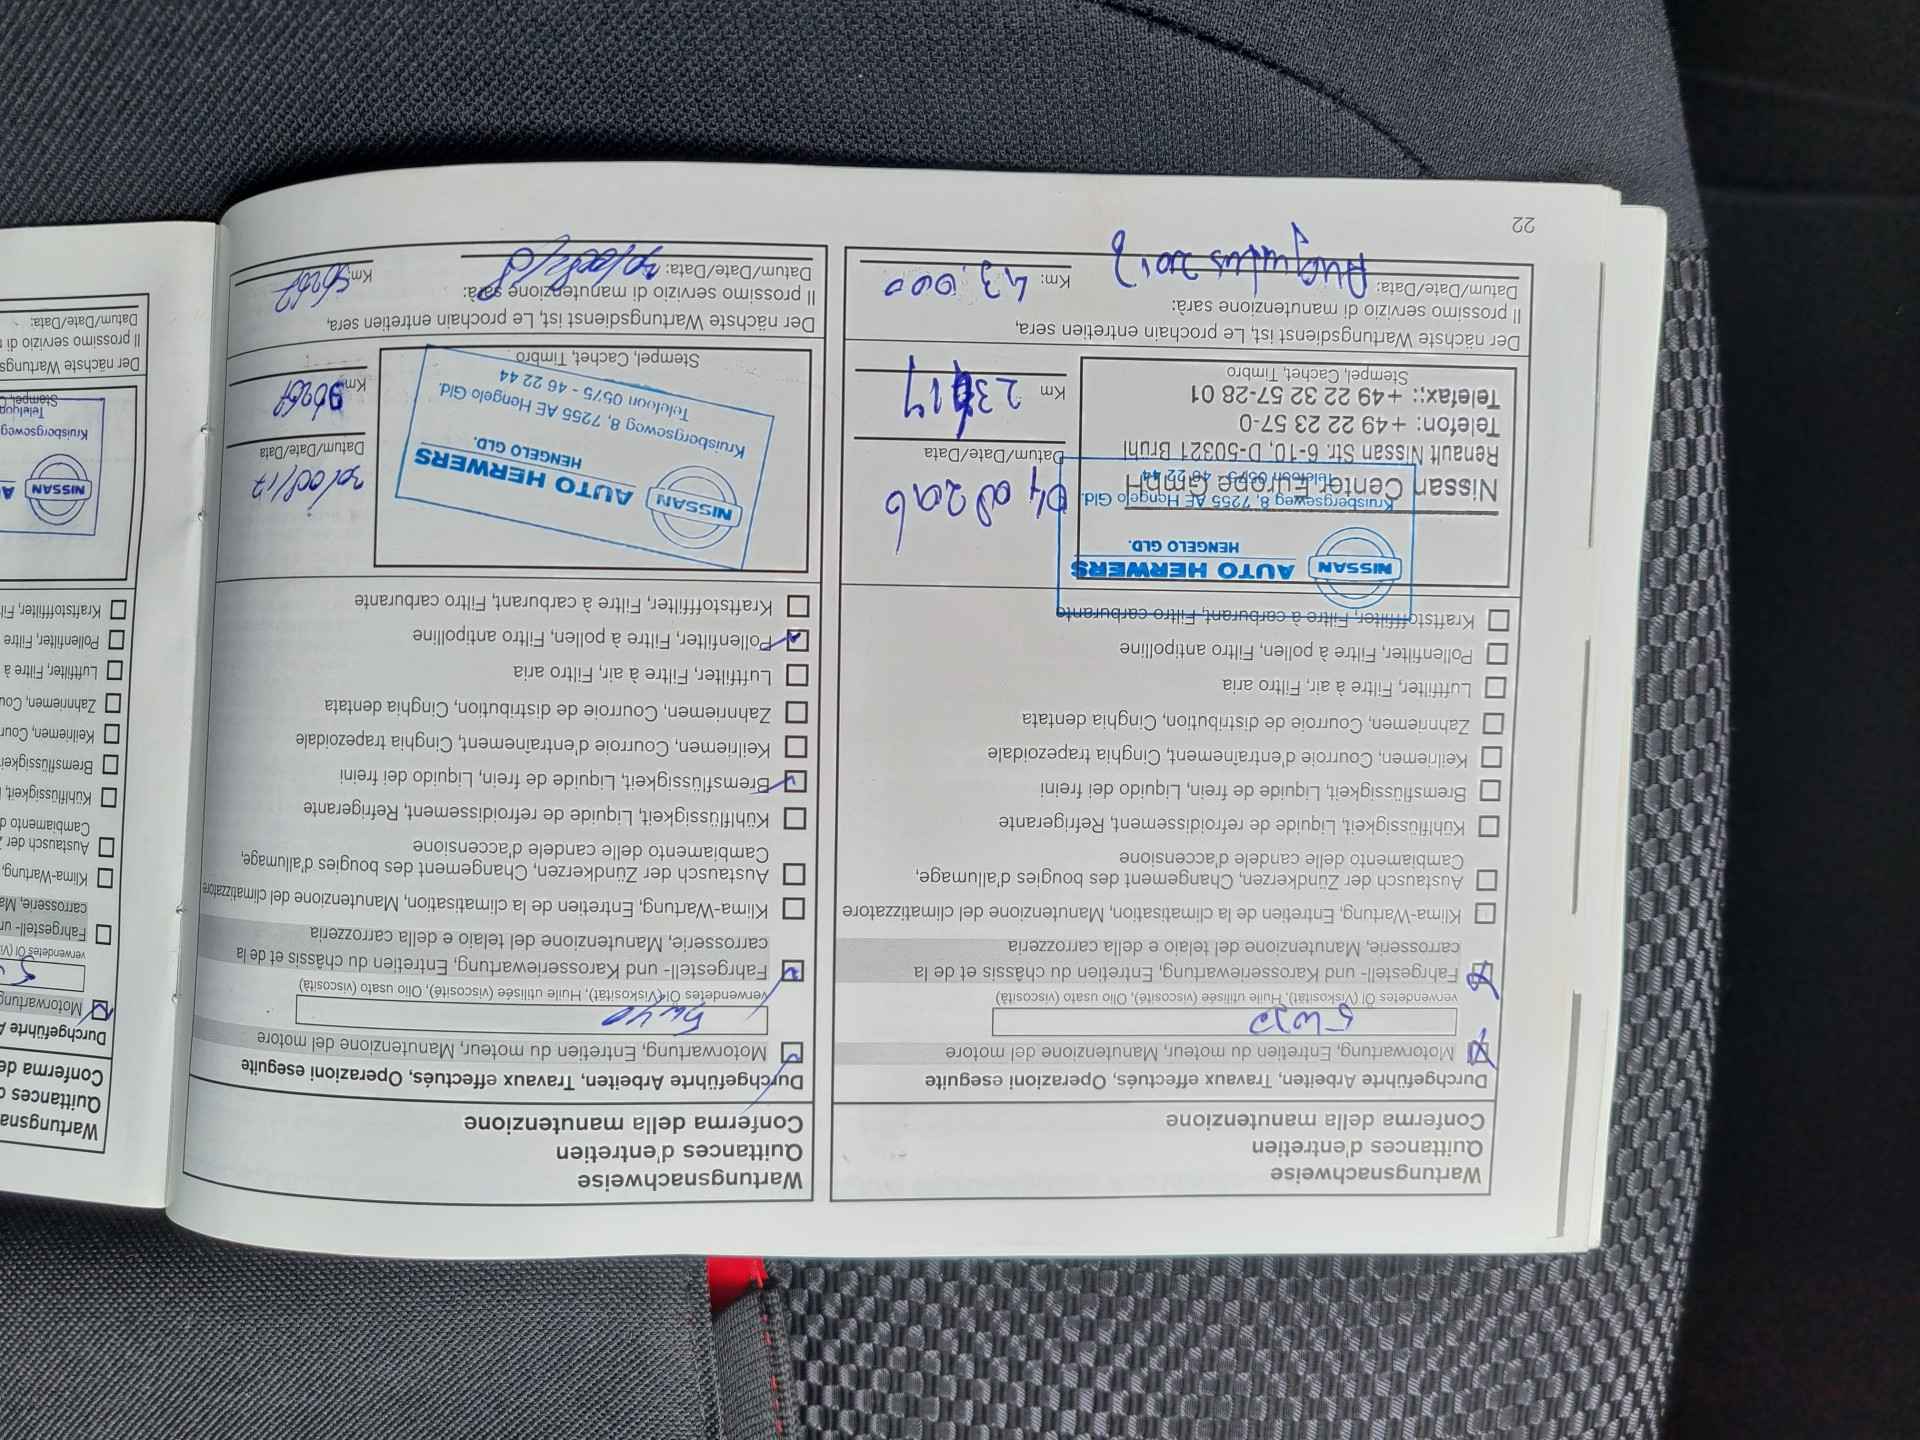 Wartungsnachweise
Quittances d'entretien
Conferma della manutenzione
Durchgeführte Arbeiten, Travaux effectués, Operazioni eseguite
Motorwartung, Entretien du moteur, Manutenzione del motore
5W30
verwendetes Öl (Viskosität), Huile utilisée (viscosité), Olio usato (viscosità)
Fahrgestell- und Karosseriewartung, Entretien du châssis et de la
carrosserie, Manutenzione del telaio e della carrozzeria
Klima-Wartung, Entretien de la climatisation, Manutenzione del climatizzatore
Austausch der Zündkerzen, Changement des bougies d'allumage,
Cambiamento delle candele d'accensione
Kühlflüssigkeit, Liquide de refroidissement, Refrigerante
Bremsflüssigkeit, Liquide de frein, Liquido dei freini
Keilriemen, Courroie d'entraînement, Cinghia trapezoidale
Zahnriemen, Courroie de distribution, Cinghia dentata
Luftfilter, Filtre à air, Filtro aria
Pollenfilter, Filtre à pollen, Filtro antipolline
Kraftstofffilter, Filtre à carburant, Filtro carburante
NISSAN AUTO HERWERS
HENGELO GLD.
Kruisbergseweg 8, 7255 AE Hengelo Gld.
Telefoon 0575 - 46 22 44
Nissan Center Europe GmbH
Renault Nissan Str. 6-10, D-50321 Brühl
Telefon: +49 22 23 57-0
Telefax:: +49 22 32 57-28 01
Stempel, Cachet, Timbro
Datum/Date/Data
Km
Der nächste Wartungsdienst ist, Le prochain entretien sera,
Il prossimo servizio di manutenzione sarà:
Datum/Date/Data: Augustus 2017
Km: 43.000
22
Wartungsnachweise
Quittances d'entretien
Conferma della manutenzione
Durchgeführte Arbeiten, Travaux effectués, Operazioni eseguite
Motorwartung, Entretien du moteur, Manutenzione del motore
5W40
verwendetes Öl (Viskosität), Huile utilisée (viscosité), Olio usato (viscosità)
Fahrgestell- und Karosseriewartung, Entretien du châssis et de la
carrosserie, Manutenzione del telaio e della carrozzeria
Klima-Wartung, Entretien de la climatisation, Manutenzione del climatizzatore
Austausch der Zündkerzen, Changement des bougies d'allumage,
Cambiamento delle candele d'accensione
Kühlflüssigkeit, Liquide de refroidissement, Refrigerante
Bremsflüssigkeit, Liquide de frein, Liquido dei freini
Keilriemen, Courroie d'entraînement, Cinghia trapezoidale
Zahnriemen, Courroie de distribution, Cinghia dentata
Luftfilter, Filtre à air, Filtro aria
Pollenfilter, Filtre à pollen, Filtro antipolline
Kraftstofffilter, Filtre à carburant, Filtro carburante
NISSAN AUTO HERWERS
HENGELO GLD.
Kruisbergseweg 8, 7255 AE Hengelo Gld.
Telefoon 0575 - 46 22 44
Stempel, Cachet, Timbro
30/08/17
Datum/Date/Data
Km
Der nächste Wartungsdienst ist, Le prochain entretien sera,
Il prossimo servizio di manutenzione sarà:
Datum/Date/Data: 30/08/18
Km: 56267
Wartungsna
Quittances d
Conferma de
Durchgeführte A
Motorwartung
verwendetes Öl (Vi
Fahrgestell- un
carrosserie, Ma
Klima-Wartung,
Austausch der Z
Cambiamento d
Kühlflüssigkeit, L
Bremsflüssigkei
Keilriemen, Cour
Zahnriemen, Cou
Luftfilter, Filtre à
Pollenfilter, Filtre
Kraftstofffilter, Fil
NISSAN A
Kruisbergseweg
Stempel, Cachet
Der nächste Wartungs
Il prossimo servizio di
Datum/Date/Data: